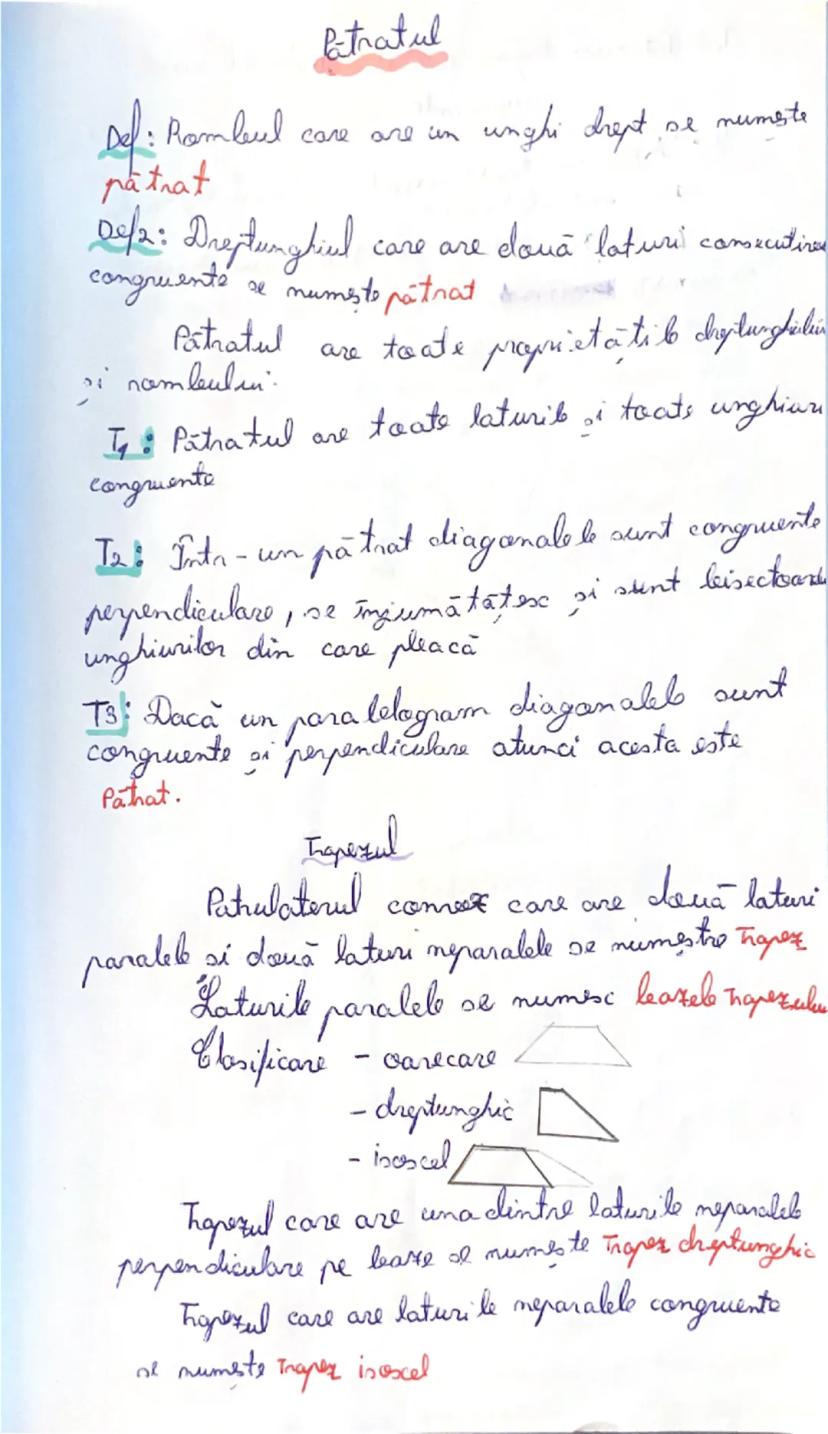 Pătratul
Def: Rombul care are un unghi drept se numește
pătrat
Def2: Dreptunghiul care are două laturi consecutive
congruente se numește pătrat
Pătratul are toate proprietățile dreptunghiului
și rombului.
T1: Pătratul are toate laturile și toate unghiuri
congruente
T2: Într-un pătrat diagonalele sunt congruente
perpendiculare, se înjumătățesc și sunt bisectoarele
unghiurilor din care pleacă
T3: Dacă un paralelogram diagonalele sunt
congruente și perpendiculare atunci acesta este
Pătrat.
Trapezul
Patrulaterul convex care are două laturi
paralele si două laturi neparalele se numește Trapez
Laturile paralele se numesc bazele Trapezului
Clasificare - oarecare
- dreptunghic
- isoscel
Trapezul care are una dintre laturile neparalele
perpendiculare pe baze se numește Trapez dreptunghic
Trapezul care are laturile neparalele congruente
se numește Trapez isoscel